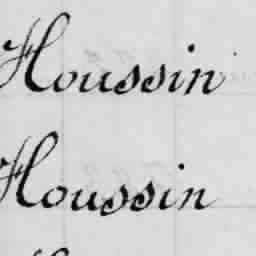 Houssin
Houssin